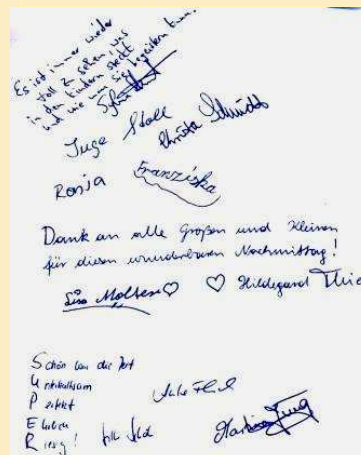 Es ist immer wieder
toll z sehen, was
in den Kindern steckt
und wie man sie begeistern kann.
Inge Stoll
Christa Schmidt
Ronja
Franziska
Dank an alle Großen und Kleinen
für diesen wunderbaren Nachmittag!
Lisa Moltsen ♡ ♡ Hildegard
Schön war die Zeit
Unterhaltsam
Perfekt
Erleben
Riesig!